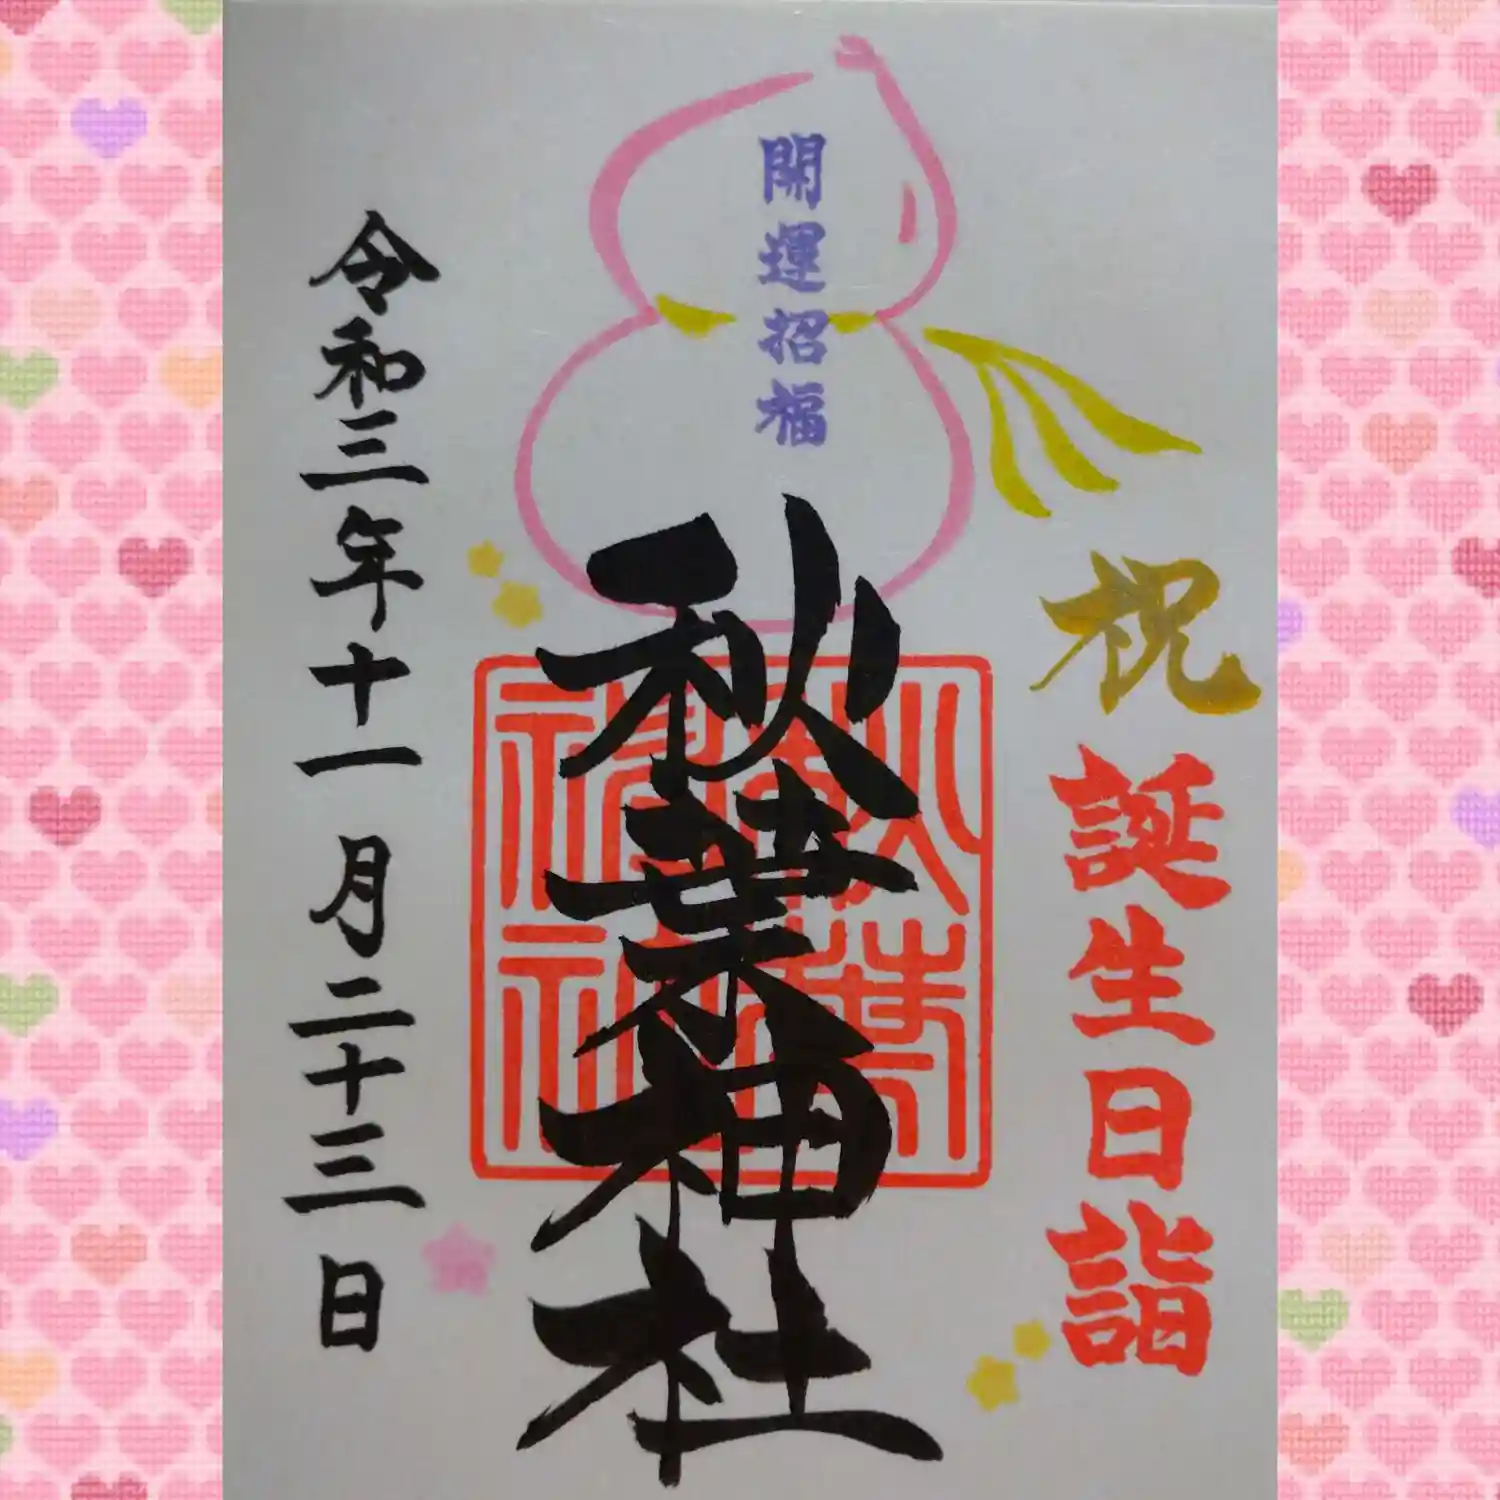 祝
誕生日詣
開運招福
秋葉神社
秋葉神社
令和三年十一月二十三日